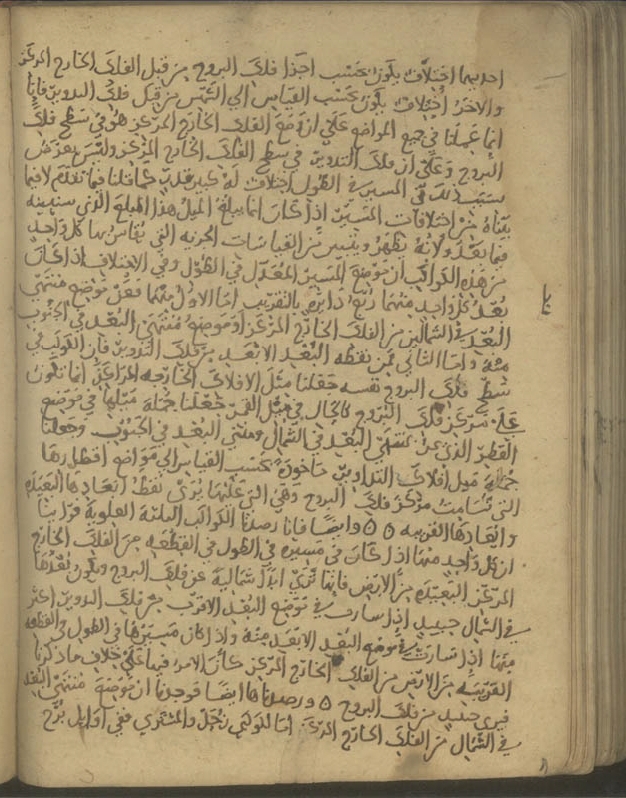 احديهما اختلاف يكون بحسب اجزا فلك البروج من قبل الفلك الخارج المركز
والاخر اختلاف يكون بحسب القياس الي الشمس من قبل فلك التدوير فانا
انما عملنا في جميع المواضع علي ان وضع الفلك الخارج المركز هو في سطح فلك
البروج وعلي ان فلك التدوير في سطح الفلك الخارج المركز وليس يعرض
بسبب ذلك في المسير في الطول اختلاف له كبير قدر كما قلنا فيما تقدم لا فيما
بيناه من اختلافات المسير اذا كان انما مبلغ الميل هذا المبلغ الذي سنبينه
فيما بعد ولانه يظهر ويتبين من القياسات الجزيه التي يقاس بها كل واحد
من هذه الكواكب ان موضع المسير المعدل في الطول وفي الاختلاف اذا كان
بعد كل واحد منهما ربع دايرة بالتقريب اما الاول منهما فعن موضع منتهي
البعد في الشمال من الفلك الخارج المركز او موضع منتهي البعد في الجنوب
منه واما الثاني فمن نقطه البعد الابعد من فلك التدوير فان الكوكب في
سطح فلك البروج نفسه جعلنا ميل الافلاك الخارجه المراكز انما تكون
علي مركز فلك البروج كالحال في ميل القمر جعلنا جملة ميلها في موضع
القطر الذي عن منتهي البعد في الشمال ومنتهي البعد في الجنوب وجعلنا
جملة ميل افلاك التداوير ماخوذة بحسب القياس الي مواضع اقطارها
التي تسامت مركز فلك البروج وهي التي عليها يري نقط ابعادها البعيده
وابعادها القريبه ه ه وايضا فانا رصدنا الكواكب الثلثة العلوية فراينا
ان كل واحد منها اذا كان في مسيره في الطول في القطعه من الفلك الخارج
المركز البعيده من الارض فانها تري ابدا شمالية عن فلك البروج ويكون بعدها
في الشمال حينيذ اذا سارت في موضع البعد الاقرب من فلك التدوير اكثر
منها اذا سارت في موضع البعد الابعد منه واذا كان مسيرها في الطول في القطعه
القريبه من الارض من الفلك الخارج المركز كان الامر فيها علي خلاف ما ذكرنا
فيري حينيذ من فلك البروج ه ورصدناها ايضا فوجدنا ان موضع منتهي البعد
في الشمال من الفلك الخارج المركز اما لكوكبي زحل والمشتري ففي اوايل برج